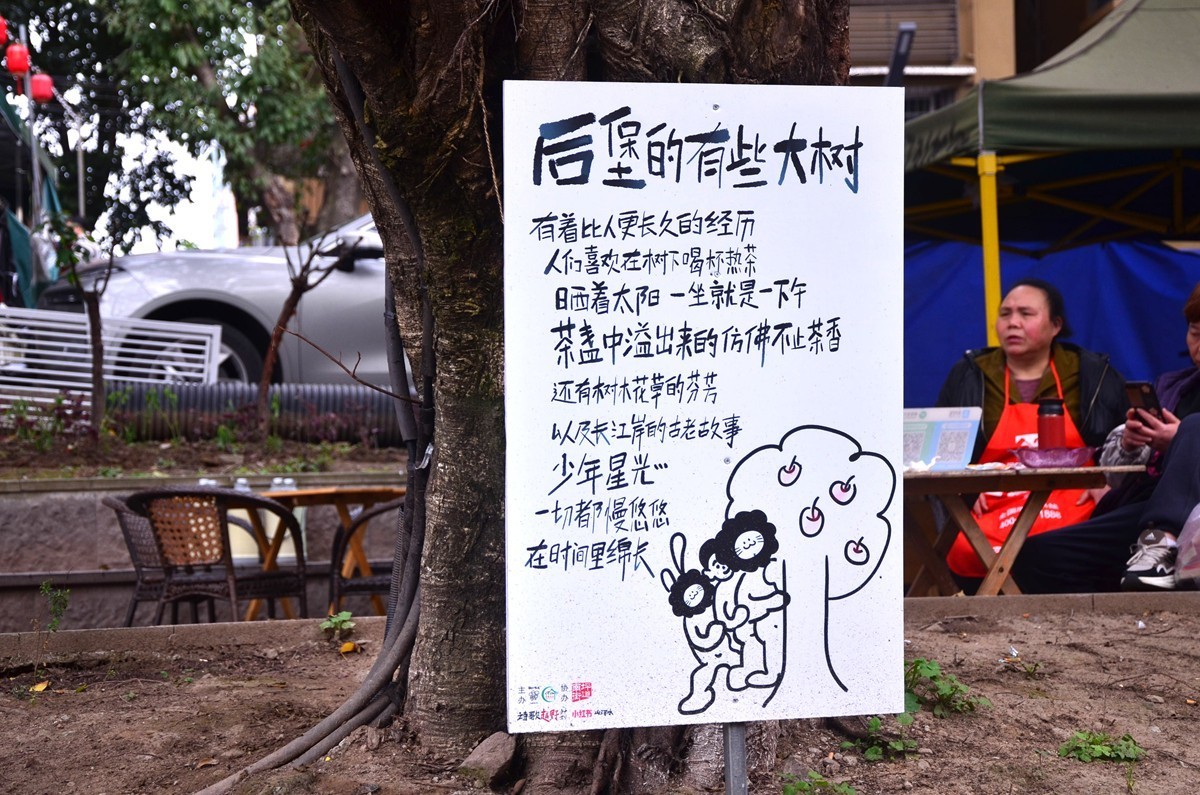 后堡的有些大树
有着比人更长久的经历
人们喜欢在树下喝杯热茶
日晒着太阳 一坐就是一下午
茶盏中溢出来的仿佛不止茶香
还有树木花草的芬芳
以及长江岸的古老故事
少年星光…
一切都慢悠悠
在时间里绵长
主办
协办
南坪街道
诗歌越野计划
小红书
400